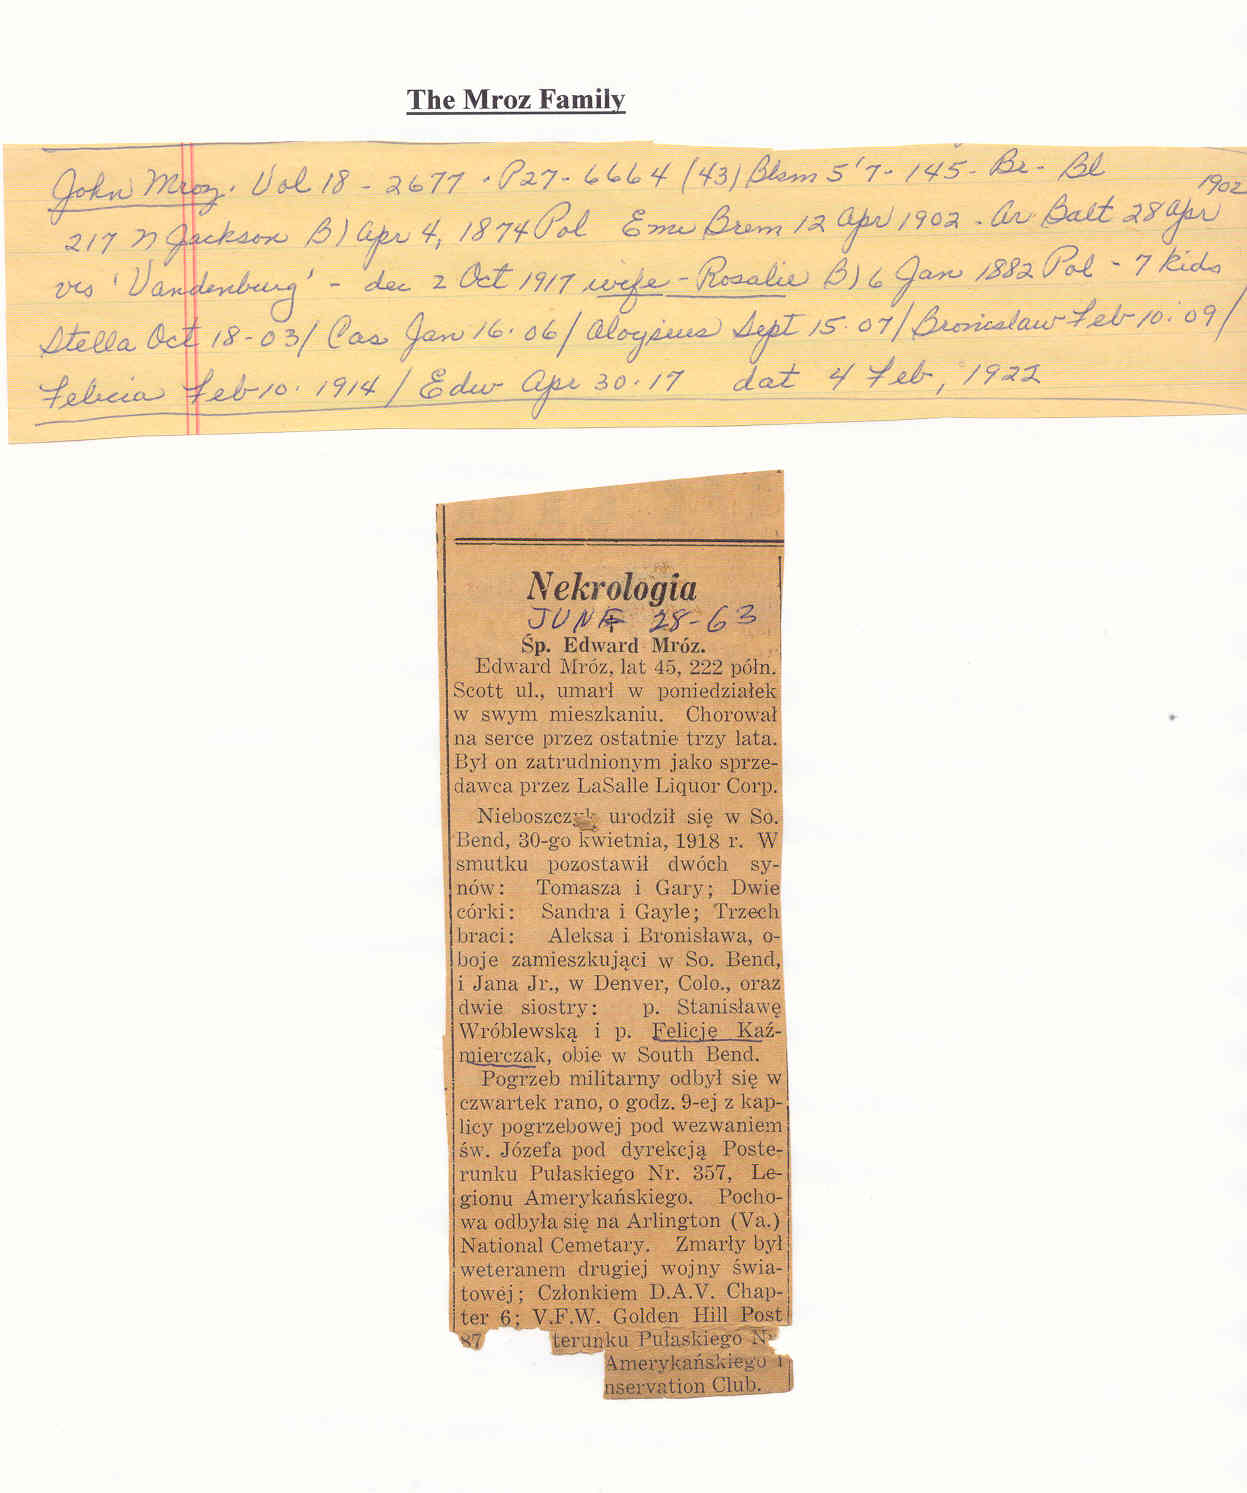 The Mroz Family
John Mroz. Vol 18 - 2677 - P27 - 6664 (43) Blsm 5'7 - 145 - Br - Bl
1902
217 N Jackson B) Apr 4, 1874 Pol Emi Brem 12 Apr 1902 - Ar Balt 28 Apr
vis 'Vandenburg' - dec 2 Oct 1917 wife - Rosalie B) 6 Jan 1882 Pol - 7 kids
Stella Oct 18-03/ Cas Jan 16-06/ Aloysius Sept 15-07/ Bronislaw Feb 10-09/
Felicia Feb 10-1914 / Edw Apr 30-17 dat 4 Feb, 1922
Nekrologia
JUNE 28-63
Śp. Edward Mróz.
Edward Mróz, lat 45, 222 półn.
Scott ul., umarł w poniedziałek
w swym mieszkaniu. Chorował
na serce przez ostatnie trzy lata.
Był on zatrudnionym jako sprze-
dawca przez LaSalle Liquor Corp.
Nieboszczyk urodził się w So.
Bend, 30-go kwietnia, 1918 r. W
smutku pozostawił dwóch sy-
nów: Tomasza i Gary; Dwie
córki: Sandra i Gayle; Trzech
braci: Aleksa i Bronisława, o-
boje zamieszkujący w So. Bend,
i Jana Jr., w Denver, Colo., oraz
dwie siostry: p. Stanisławę
Wróblewską i p. Felicję Kaź-
mierczak, obie w South Bend.
Pogrzeb militarny odbył się w
czwartek rano, o godz. 9-ej z kap-
licy pogrzebowej pod wezwaniem
św. Józefa pod dyrekcją Poste-
runku Pułaskiego Nr. 357, Le-
gionu Amerykańskiego. Pocho-
wa odbyła się na Arlington (Va.)
National Cemetary. Zmarły był
weteranem drugiej wojny świa-
towej; Członkiem D.A.V. Chap-
ter 6; V.F.W. Golden Hill Post
87 terunku Pułaskiego N
Amerykańskiego i
nservation Club.